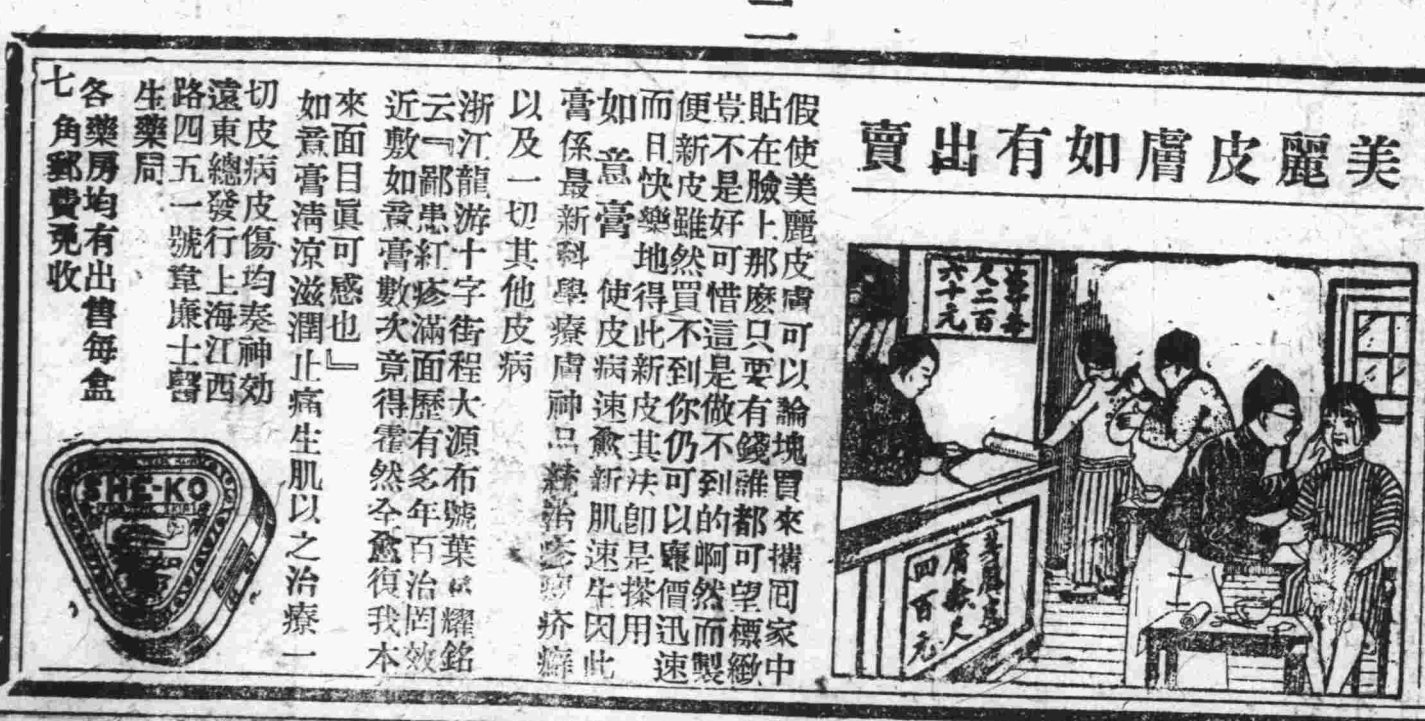 二
美麗皮膚如有出賣
六十元
尺二百
四百元
假使美麗皮膚可以論塊買來攜回家中
貼在臉上那麽只要有錢誰都可望標緻
豈不是好可惜這是做不到的啊然而製
便新皮雖然買不到你仍可以廉價迅速
而且快樂地得此新皮其法卽是搽用
如意膏 使皮病速愈新肌速生因此
膏係最新科學療膚神品統治疥癬
以及一切其他皮病
浙江龍游十字街程大源布號葉耀銘
云『鄙患紅疹滿面歷有多年百治罔效
近敷如意膏數次竟得霍然全愈復我本
來面目眞可感也』
如意膏淸涼滋潤止痛生肌以之治療一
切皮病皮傷均奏神効
遠東總發行上海江西
路四五一號韋廉士醫
生藥局
各藥房均有出售每盒
七角郵費免收
SHE-KO